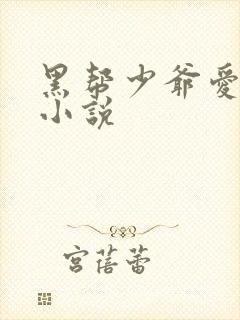 黑帮少爷愛
小説
宫蓓蕾